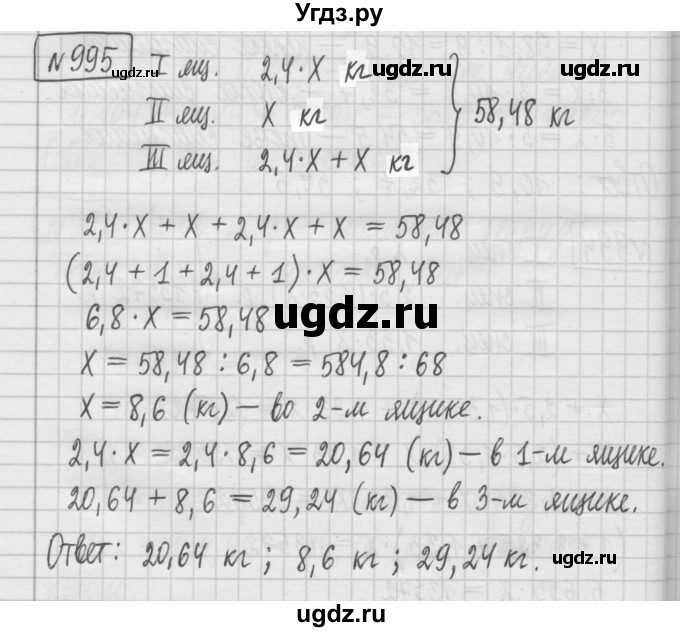 Угдз.ру
№995
I ящ. 2,4·x кг
II ящ. x кг
III ящ. 2,4·x + x кг
58,48 кг
2,4·x + x + 2,4·x + x = 58,48
(2,4 + 1 + 2,4 + 1)·x = 58,48
6,8·x = 58,48
x = 58,48 : 6,8 = 584,8 : 68
x = 8,6 (кг) — во 2-м ящике.
2,4·x = 2,4·8,6 = 20,64 (кг) — в 1-м ящике.
20,64 + 8,6 = 29,24 (кг) — в 3-м ящике.
Ответ: 20,64 кг; 8,6 кг; 29,24 кг.
ugdz.ru
ugdz.ru
ugdz.ru
ugdz.ru
ugdz.ru
ugdz.ru
ugdz.ru
ugdz.ru
ugdz.ru
ugdz.ru
ugdz.ru
ugdz.ru